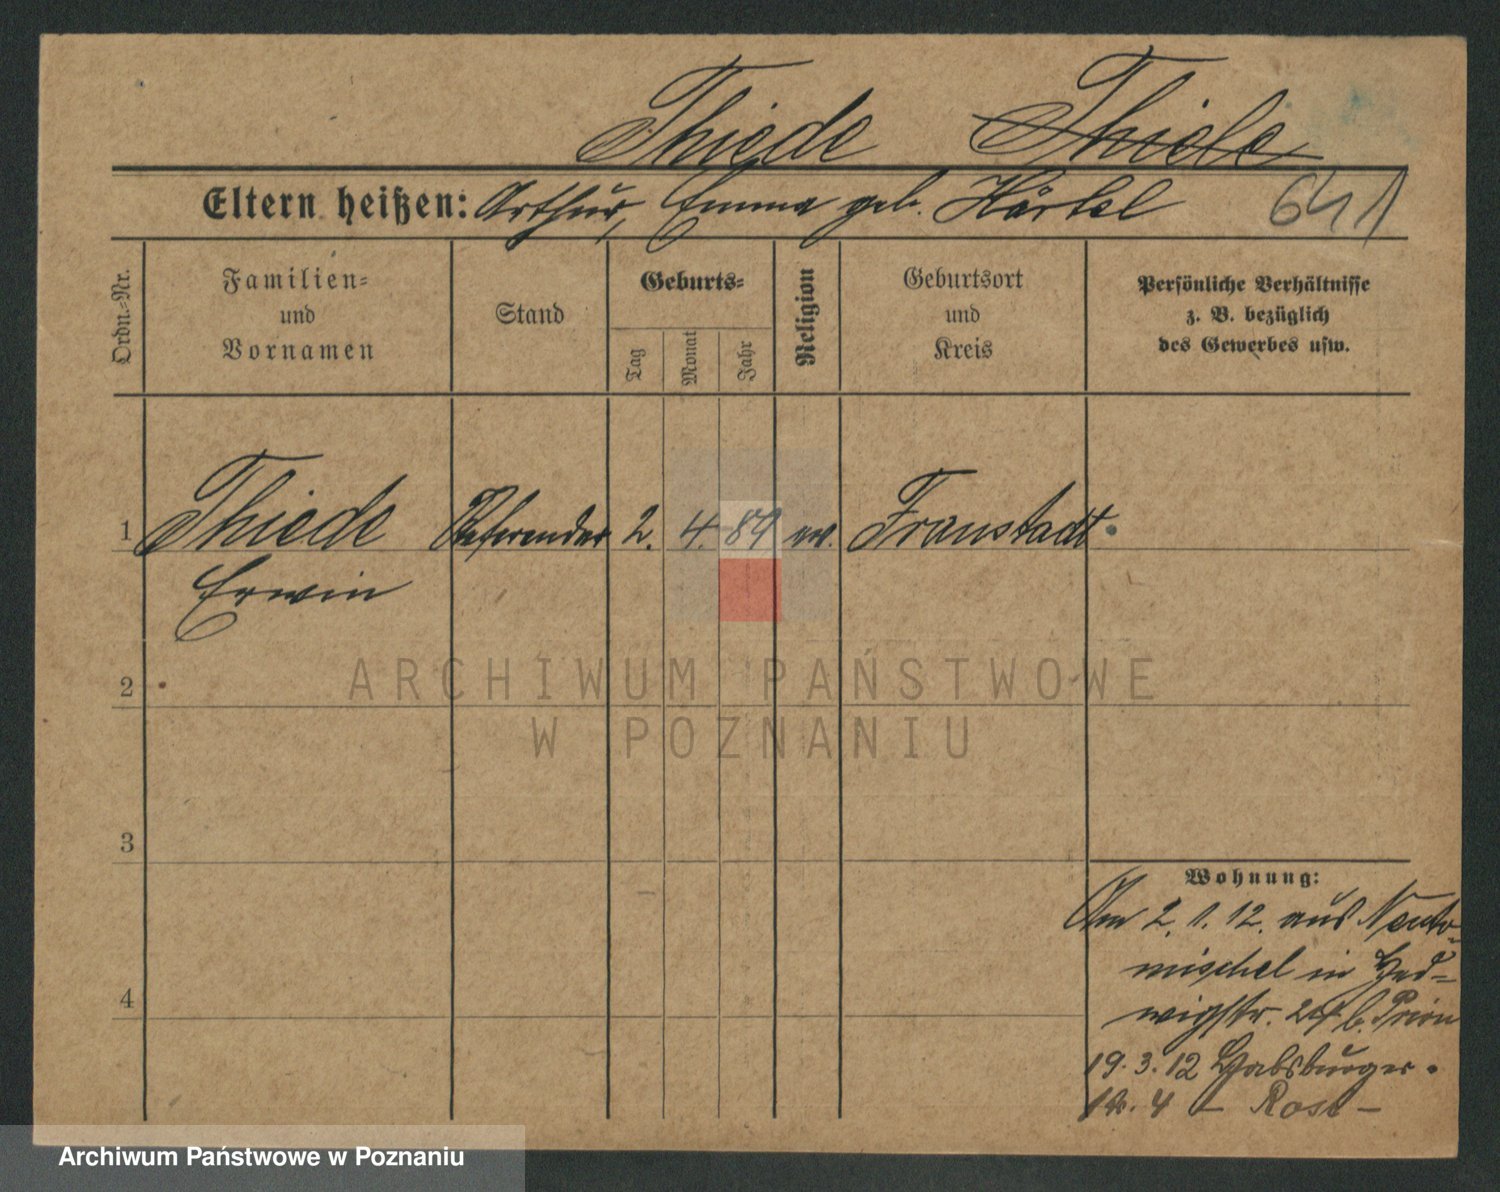 Thiede Thiele
Eltern heißen: Arthur, Emma geb. Härtel 641
Ordn.-Nr.
Familien-
und
Vornamen
Stand
Geburts-
Tag
Monat
Jahr
Religion
Geburtsort
und
Kreis
Persönliche Verhältnisse
z. B. bezüglich
des Gewerbes usw.
1 Thiede Referendar 2. 4. 89 ev. Fraustadt
Erwin
2
3
4
Wohnung:
Am 2. 1. 12. aus Neuto-
mischel in Hed-
wigstr. b.
19. 3. 12 Habsburger-
4 - Rose -
ARCHIWUM PAŃSTWOWE
W POZNANIU
Archiwum Państwowe w Poznaniu